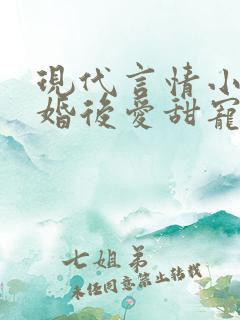 現代言情小
婚後愛甜寵
七姐弟
未任同意禁止转载